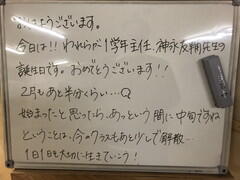 おはようございます。
今日は!! われらが1学年主任、神永友翔先生の
誕生日です。おめでとうございます!!
2月もあと半分くらい…Q
始まったと思ったら、あっという間に中旬ですね
ということは、今のクラスもあと少しで解散…
1日1日を大切に生きていこう!